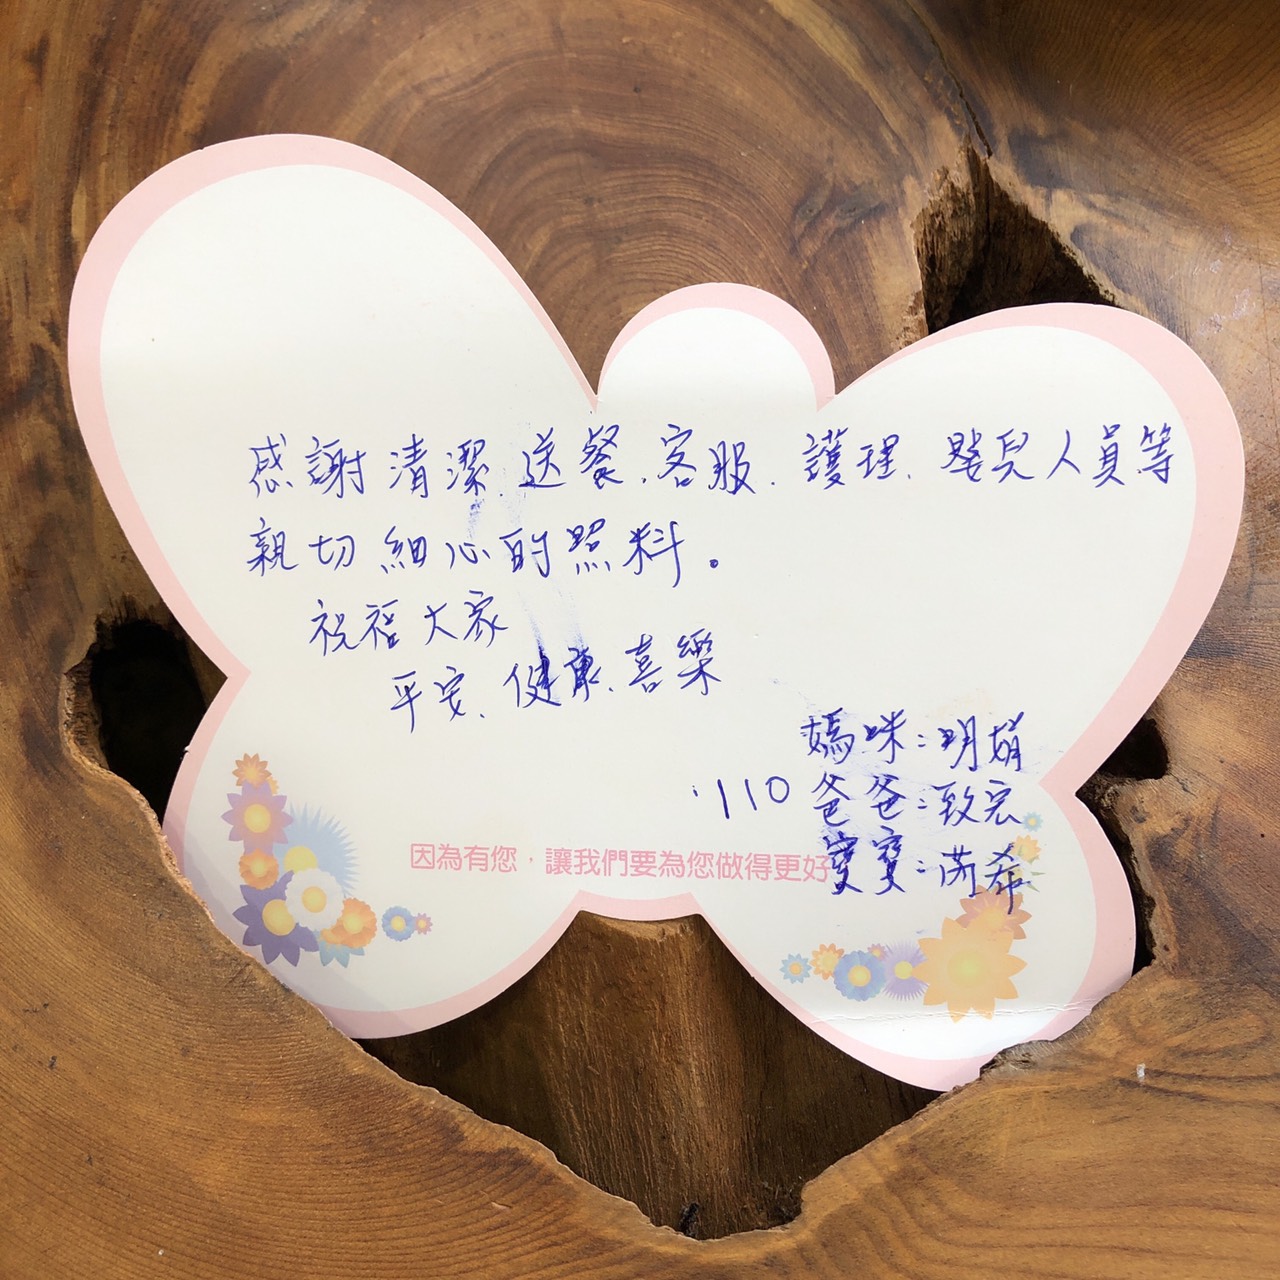 感謝清潔、送餐、客服、護理、嬰兒人員等
親切細心的照料。
祝福大家
平安、健康、喜樂
媽咪:明娟
110 爸爸:致宏
寶寶:芮希
因為有您,讓我們要為您做得更好